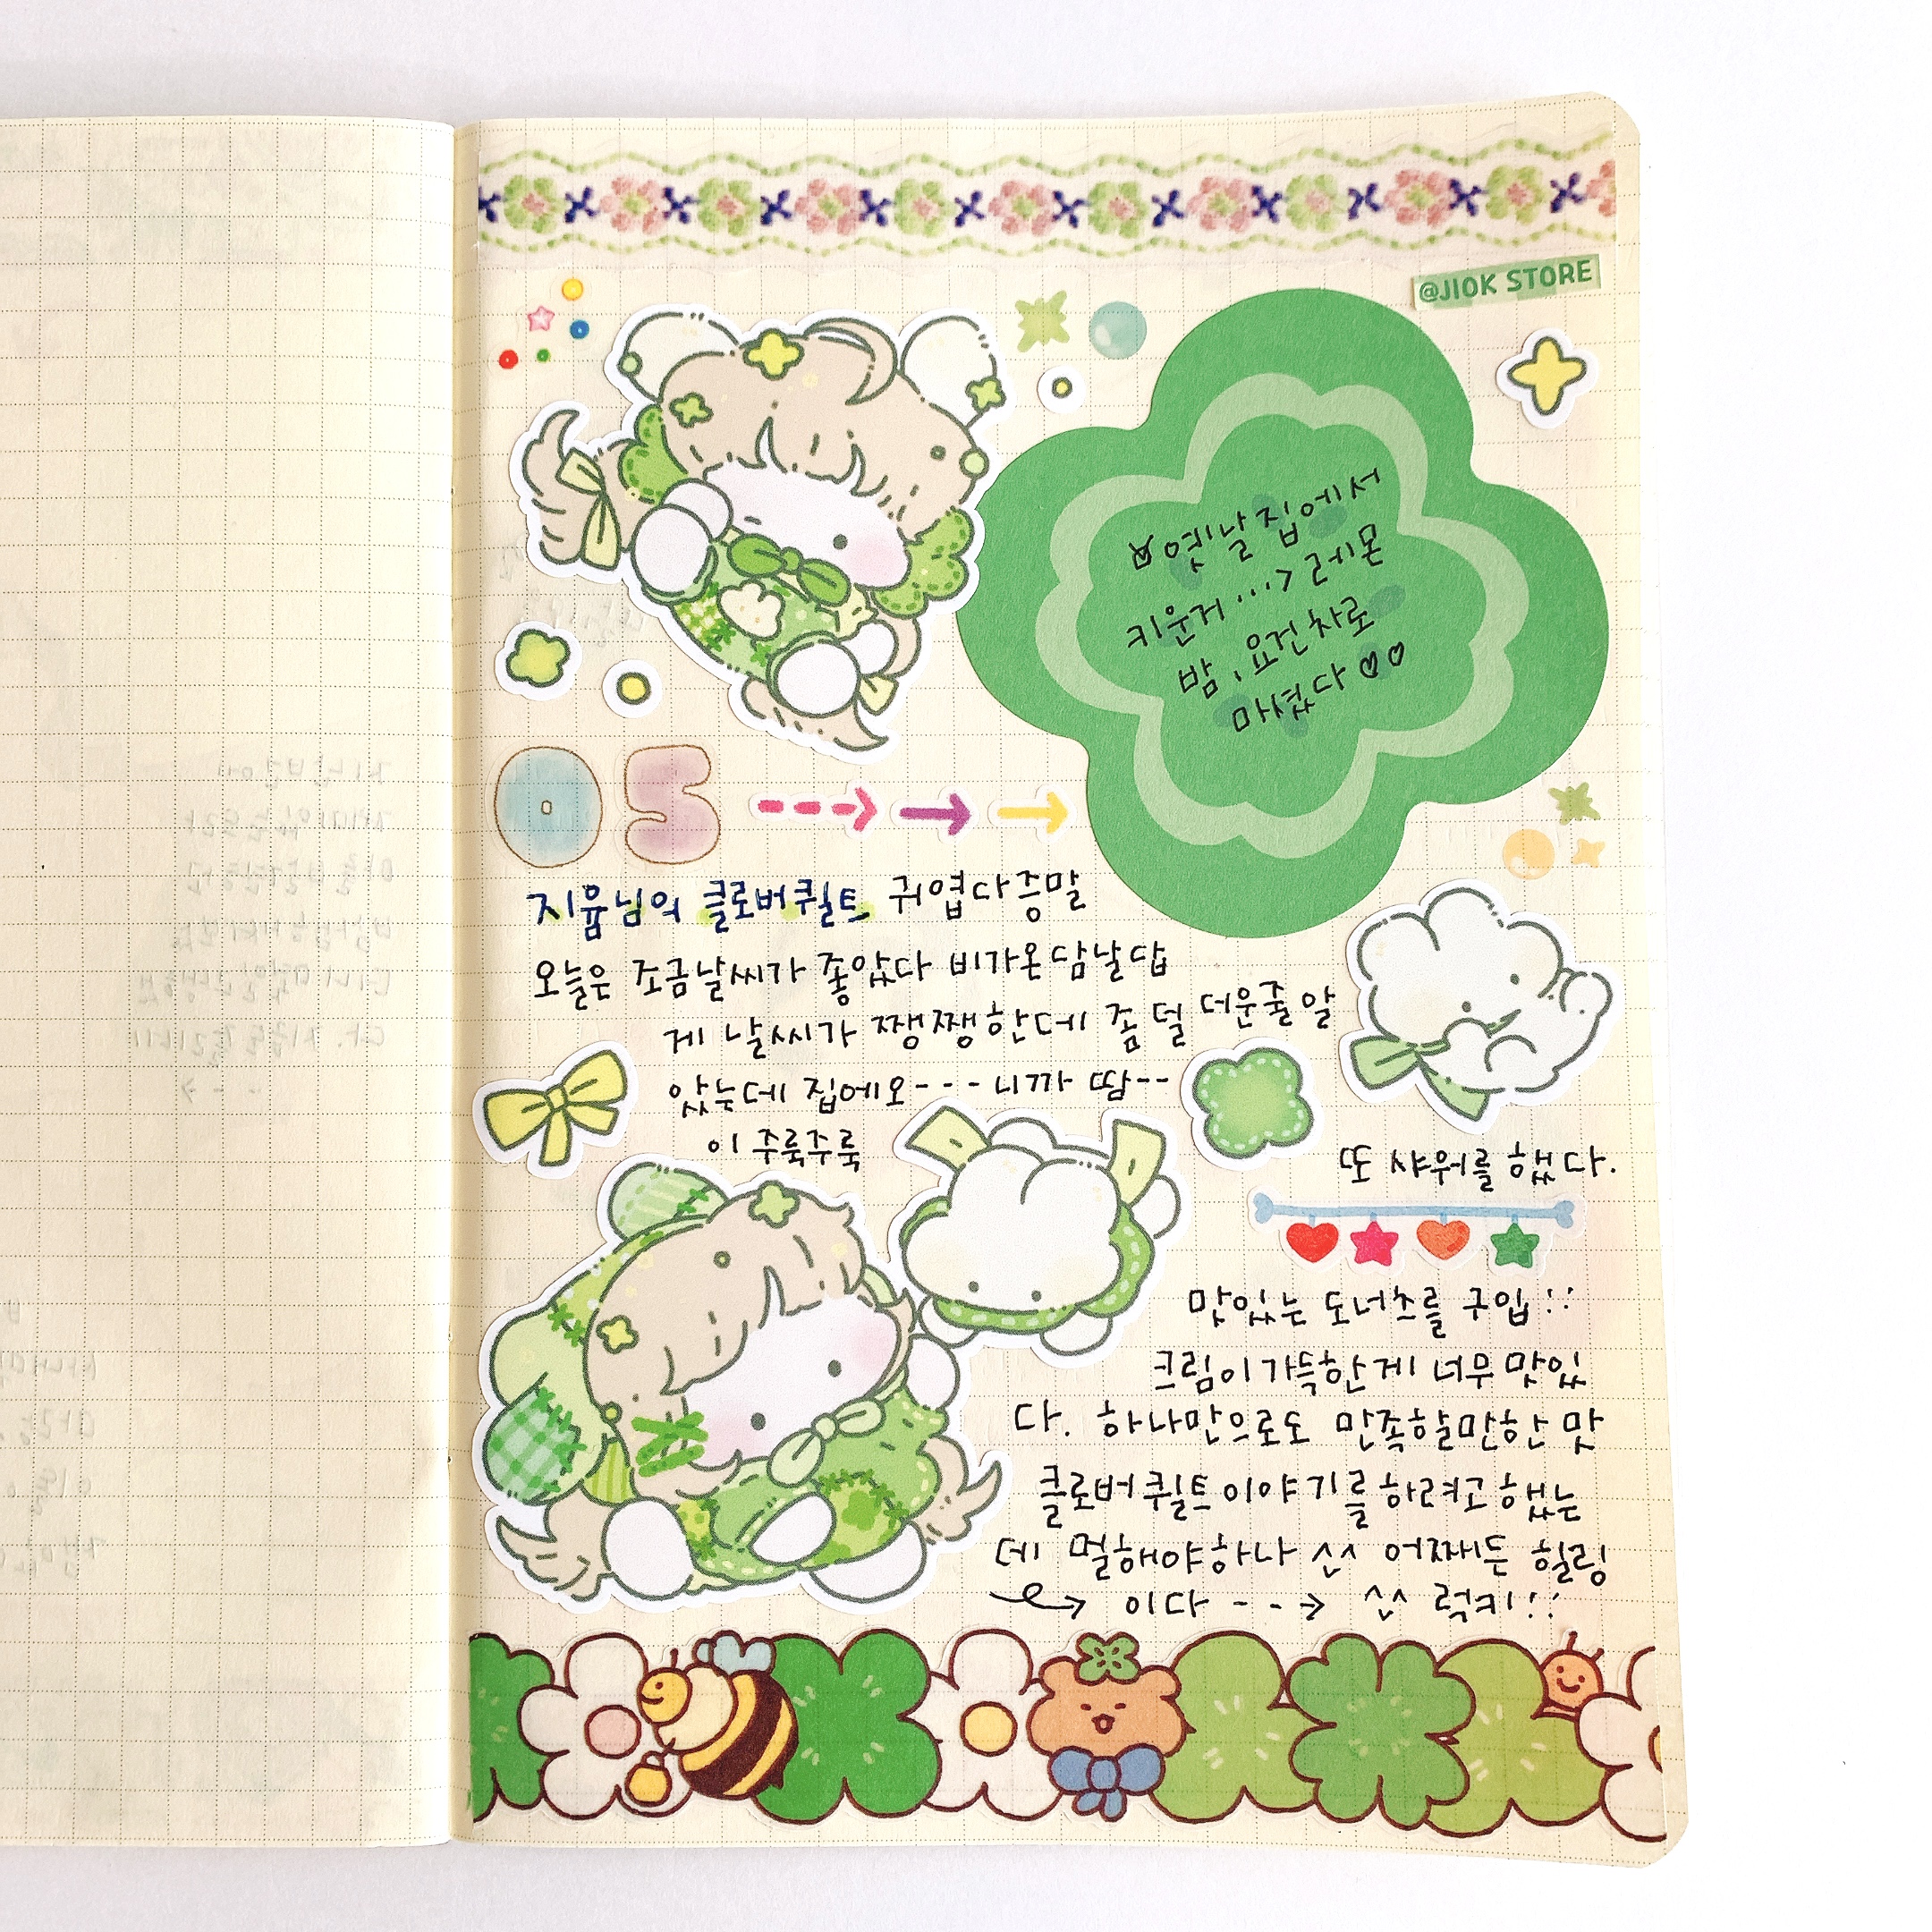 @JIOK STORE
옛날 집에서
키운거 ...> 레몬
밤, 요건 차로
마셨다 ♡♡
05
지윰님의 클로버퀼트 귀엽다증말
오늘은 조금날씨가 좋았다 비가온담날답
게 날씨가 쨍쨍한데 좀 덜 더운줄 알
았는데 집에오---니까 땀--
이 주륵주륵
또 샤워를 했다.
맛있는 도너츠를 구입 ::
크림이가득한게 너무맛있
다. 하나만으로도 만족할만한 맛
클로버퀼트이야기를하려고했는
데 멀해야하나 ^^ 어쨌든 힐링
이다 --> ^^ 럭키::